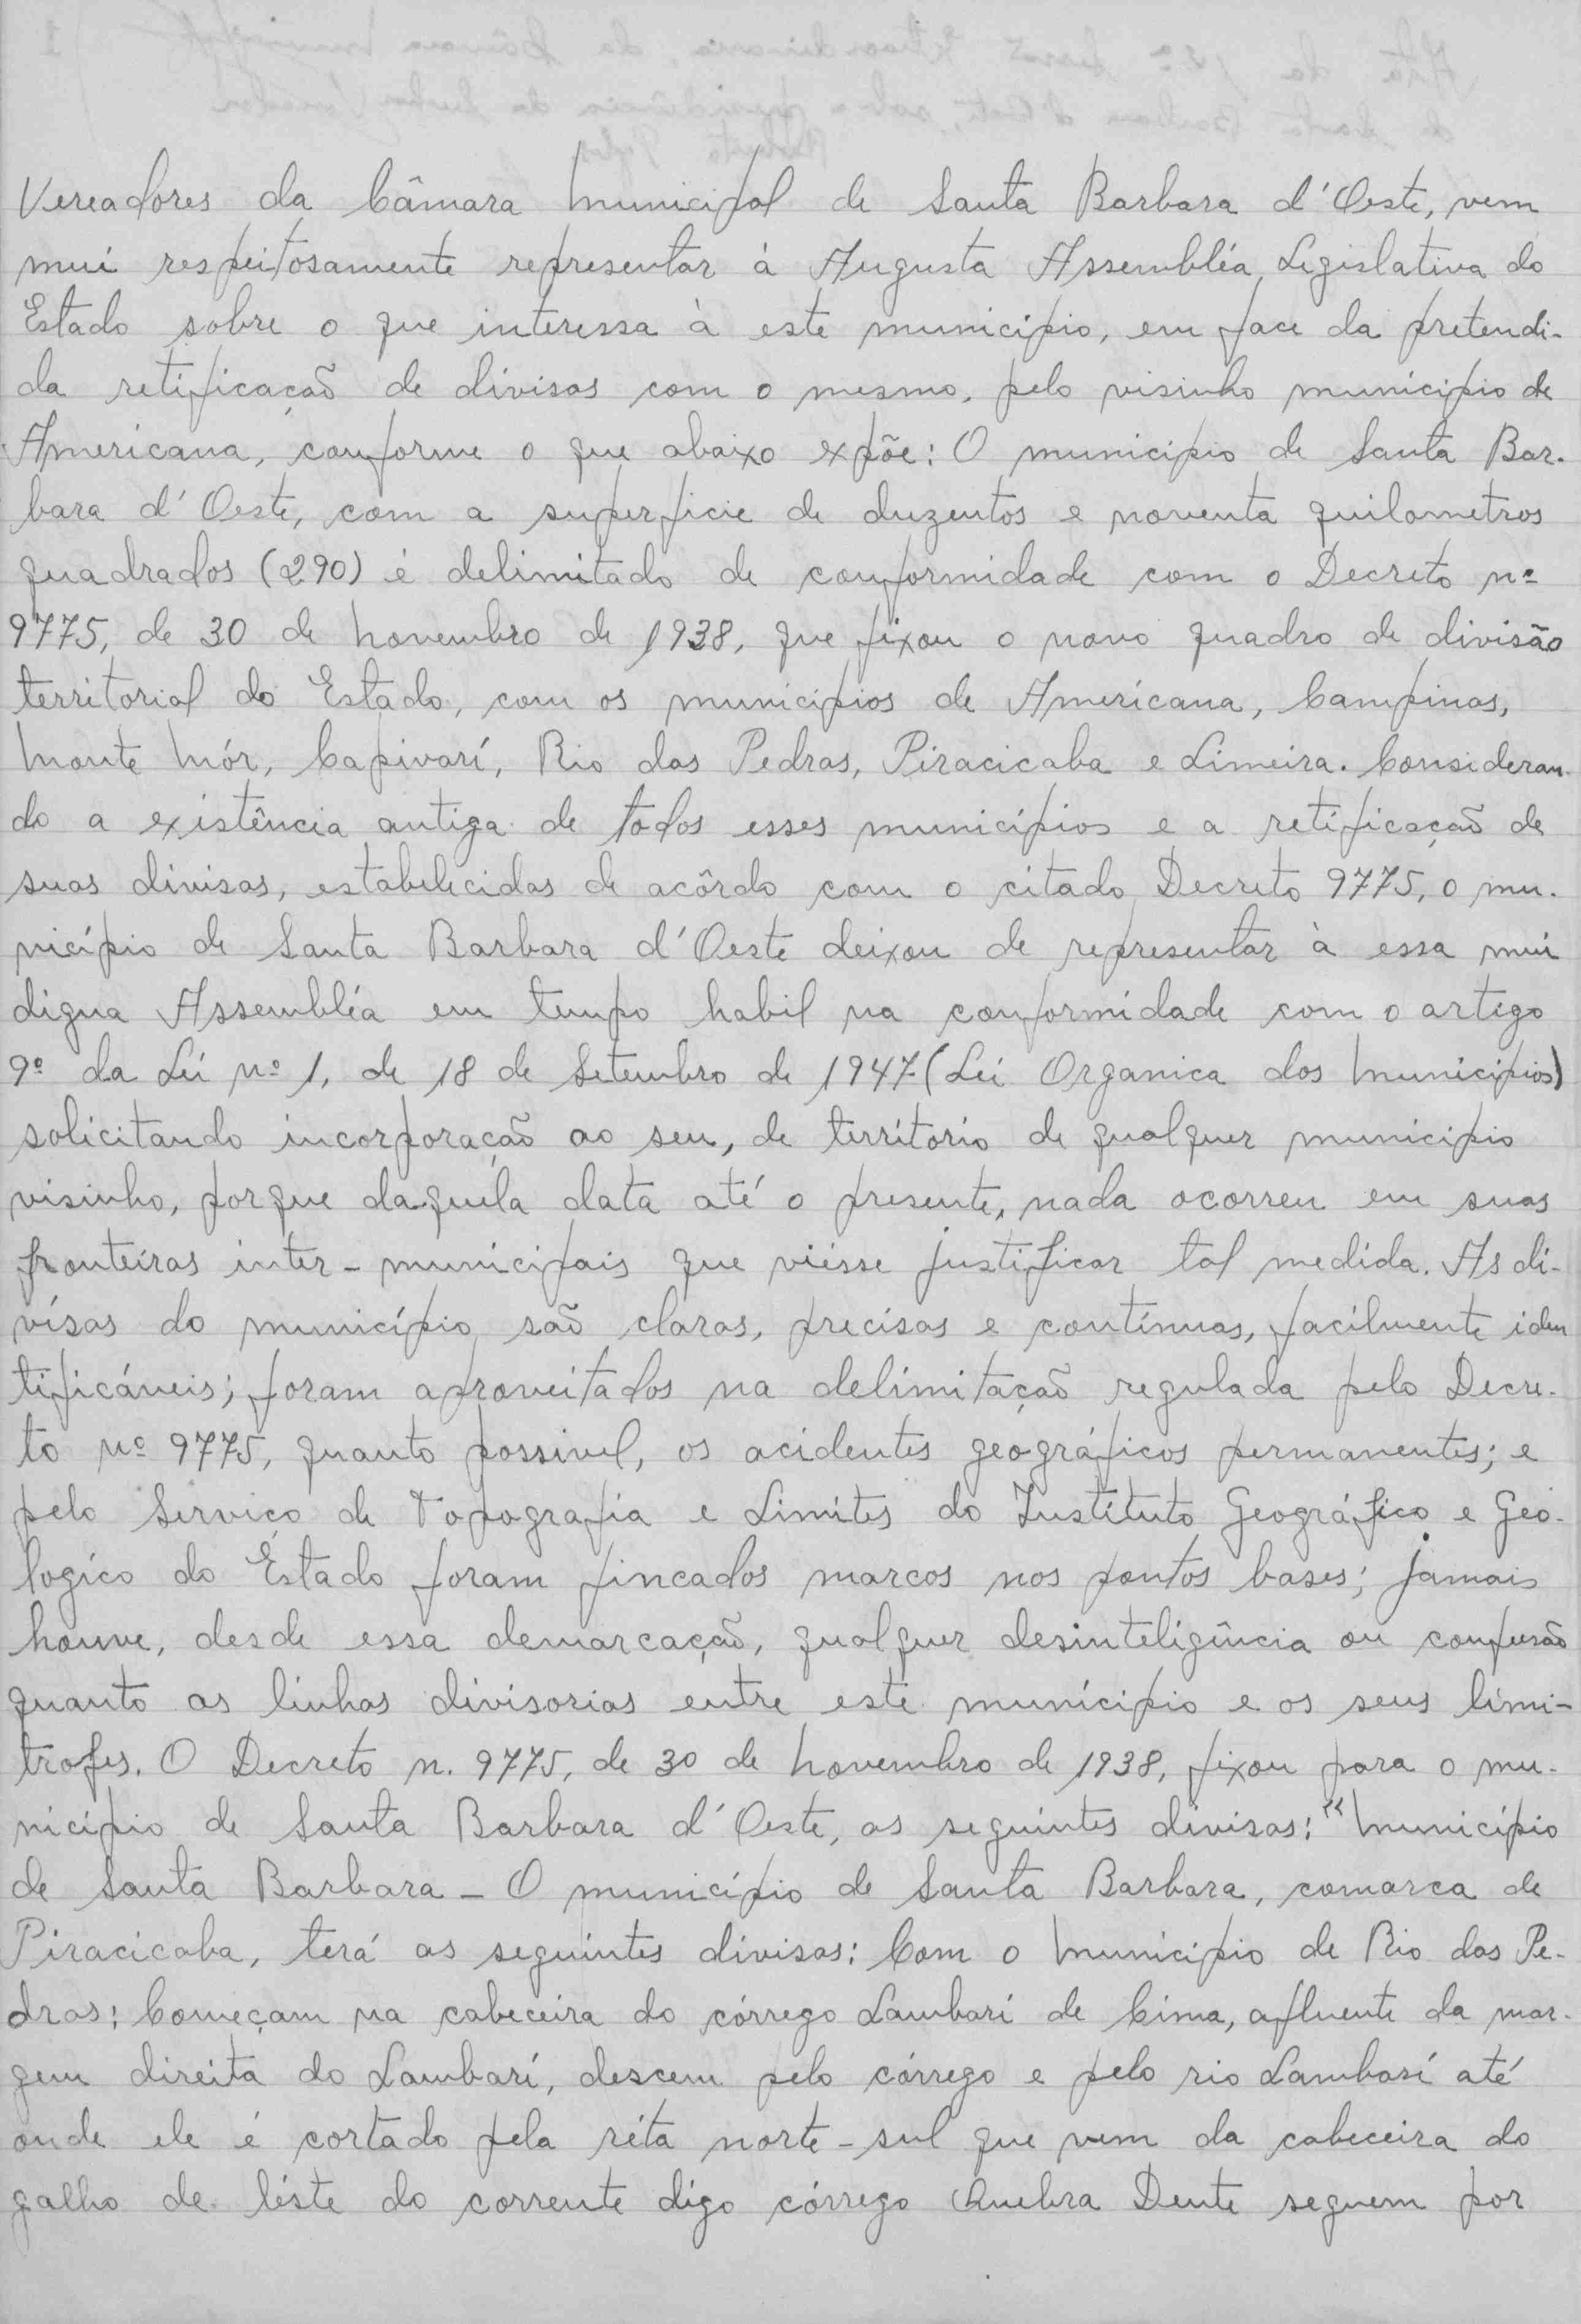 Vereadores da Câmara Municipal de Santa Barbara d'Oeste, vem
mui respeitosamente representar à Augusta Assembléa Legislativa do
Estado sobre o que interessa à este município, em face da pretendi-
da retificação de divisas com o mesmo, pelo visinho município de
Americana, conforme o que abaixo expõe: O município de Santa Bar-
bara d'Oeste, com a superficie de duzentos e noventa quilometros
quadrados (290) é delimitado de conformidade com o Decreto nº
9775, de 30 de Novembro de 1938, que fixou o novo quadro de divisão
territorial do Estado, com os municípios de Americana, Campinas,
Monte Mór, Capivarí, Rio das Pedras, Piracicaba e Limeira. Consideran-
do a existência antiga de todos esses municípios e a retificação de
suas divisas, estabelecidas de acôrdo com o citado Decreto 9775, o mu-
nicípio de Santa Barbara d'Oeste deixou de representar à essa mui
digna Assembléa em tempo habil na conformidade com o artigo
9º da Lei nº 1, de 18 de Setembro de 1947 (Lei Organica dos Municípios)
solicitando incorporação ao seu, de território de qualquer município
visinho, porque daquela data até o presente, nada ocorreu em suas
fronteiras inter-municipais que viésse justificar tal medida. As di-
visas do município são claras, precisas e contínuas, facilmente iden
tificáveis; foram aproveitados na delimitação regulada pelo Decre-
to nº 9775, quanto possivel, os acidentes geográficos permanentes; e
pelo Serviço de Topografia e Limites do Instituto Geográfico e Geo-
logico do Estado foram fincados marcos nos pontos bases; jamais
houve, desde essa demarcação, qualquer desinteligência ou confusão
quanto as linhas divisorias entre este município e os seus limi-
trofes. O Decreto n. 9775, de 30 de Novembro de 1938, fixou para o mu-
nicípio de Santa Barbara d'Oeste, as seguintes divisas: "Município
de Santa Barbara - O município de Santa Barbara, comarca de
Piracicaba, terá as seguintes divisas: Com o Município de Rio das Pe-
dras: Começam na cabeceira do córrego Lambarí de Cima, afluente da mar-
gem direita do Lambarí, descem pelo córrego e pelo rio Lambarí até
onde ele é cortado pela réta norte-sul que vem da cabeceira do
galho de léste do corrente digo córrego Quebra Dente seguem por